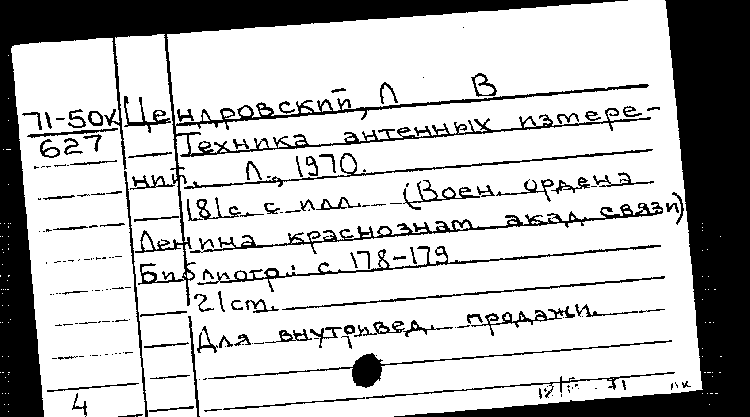 71-50к Цендровский, Л В
627 Техника антенных измере-
ний. Л., 1970.
181с. с илл. (Воен. ордена
Ленина краснознам. акад. связи)
Библиогр.: с. 178-179.
21см.
Для внутривед. продажи.
4